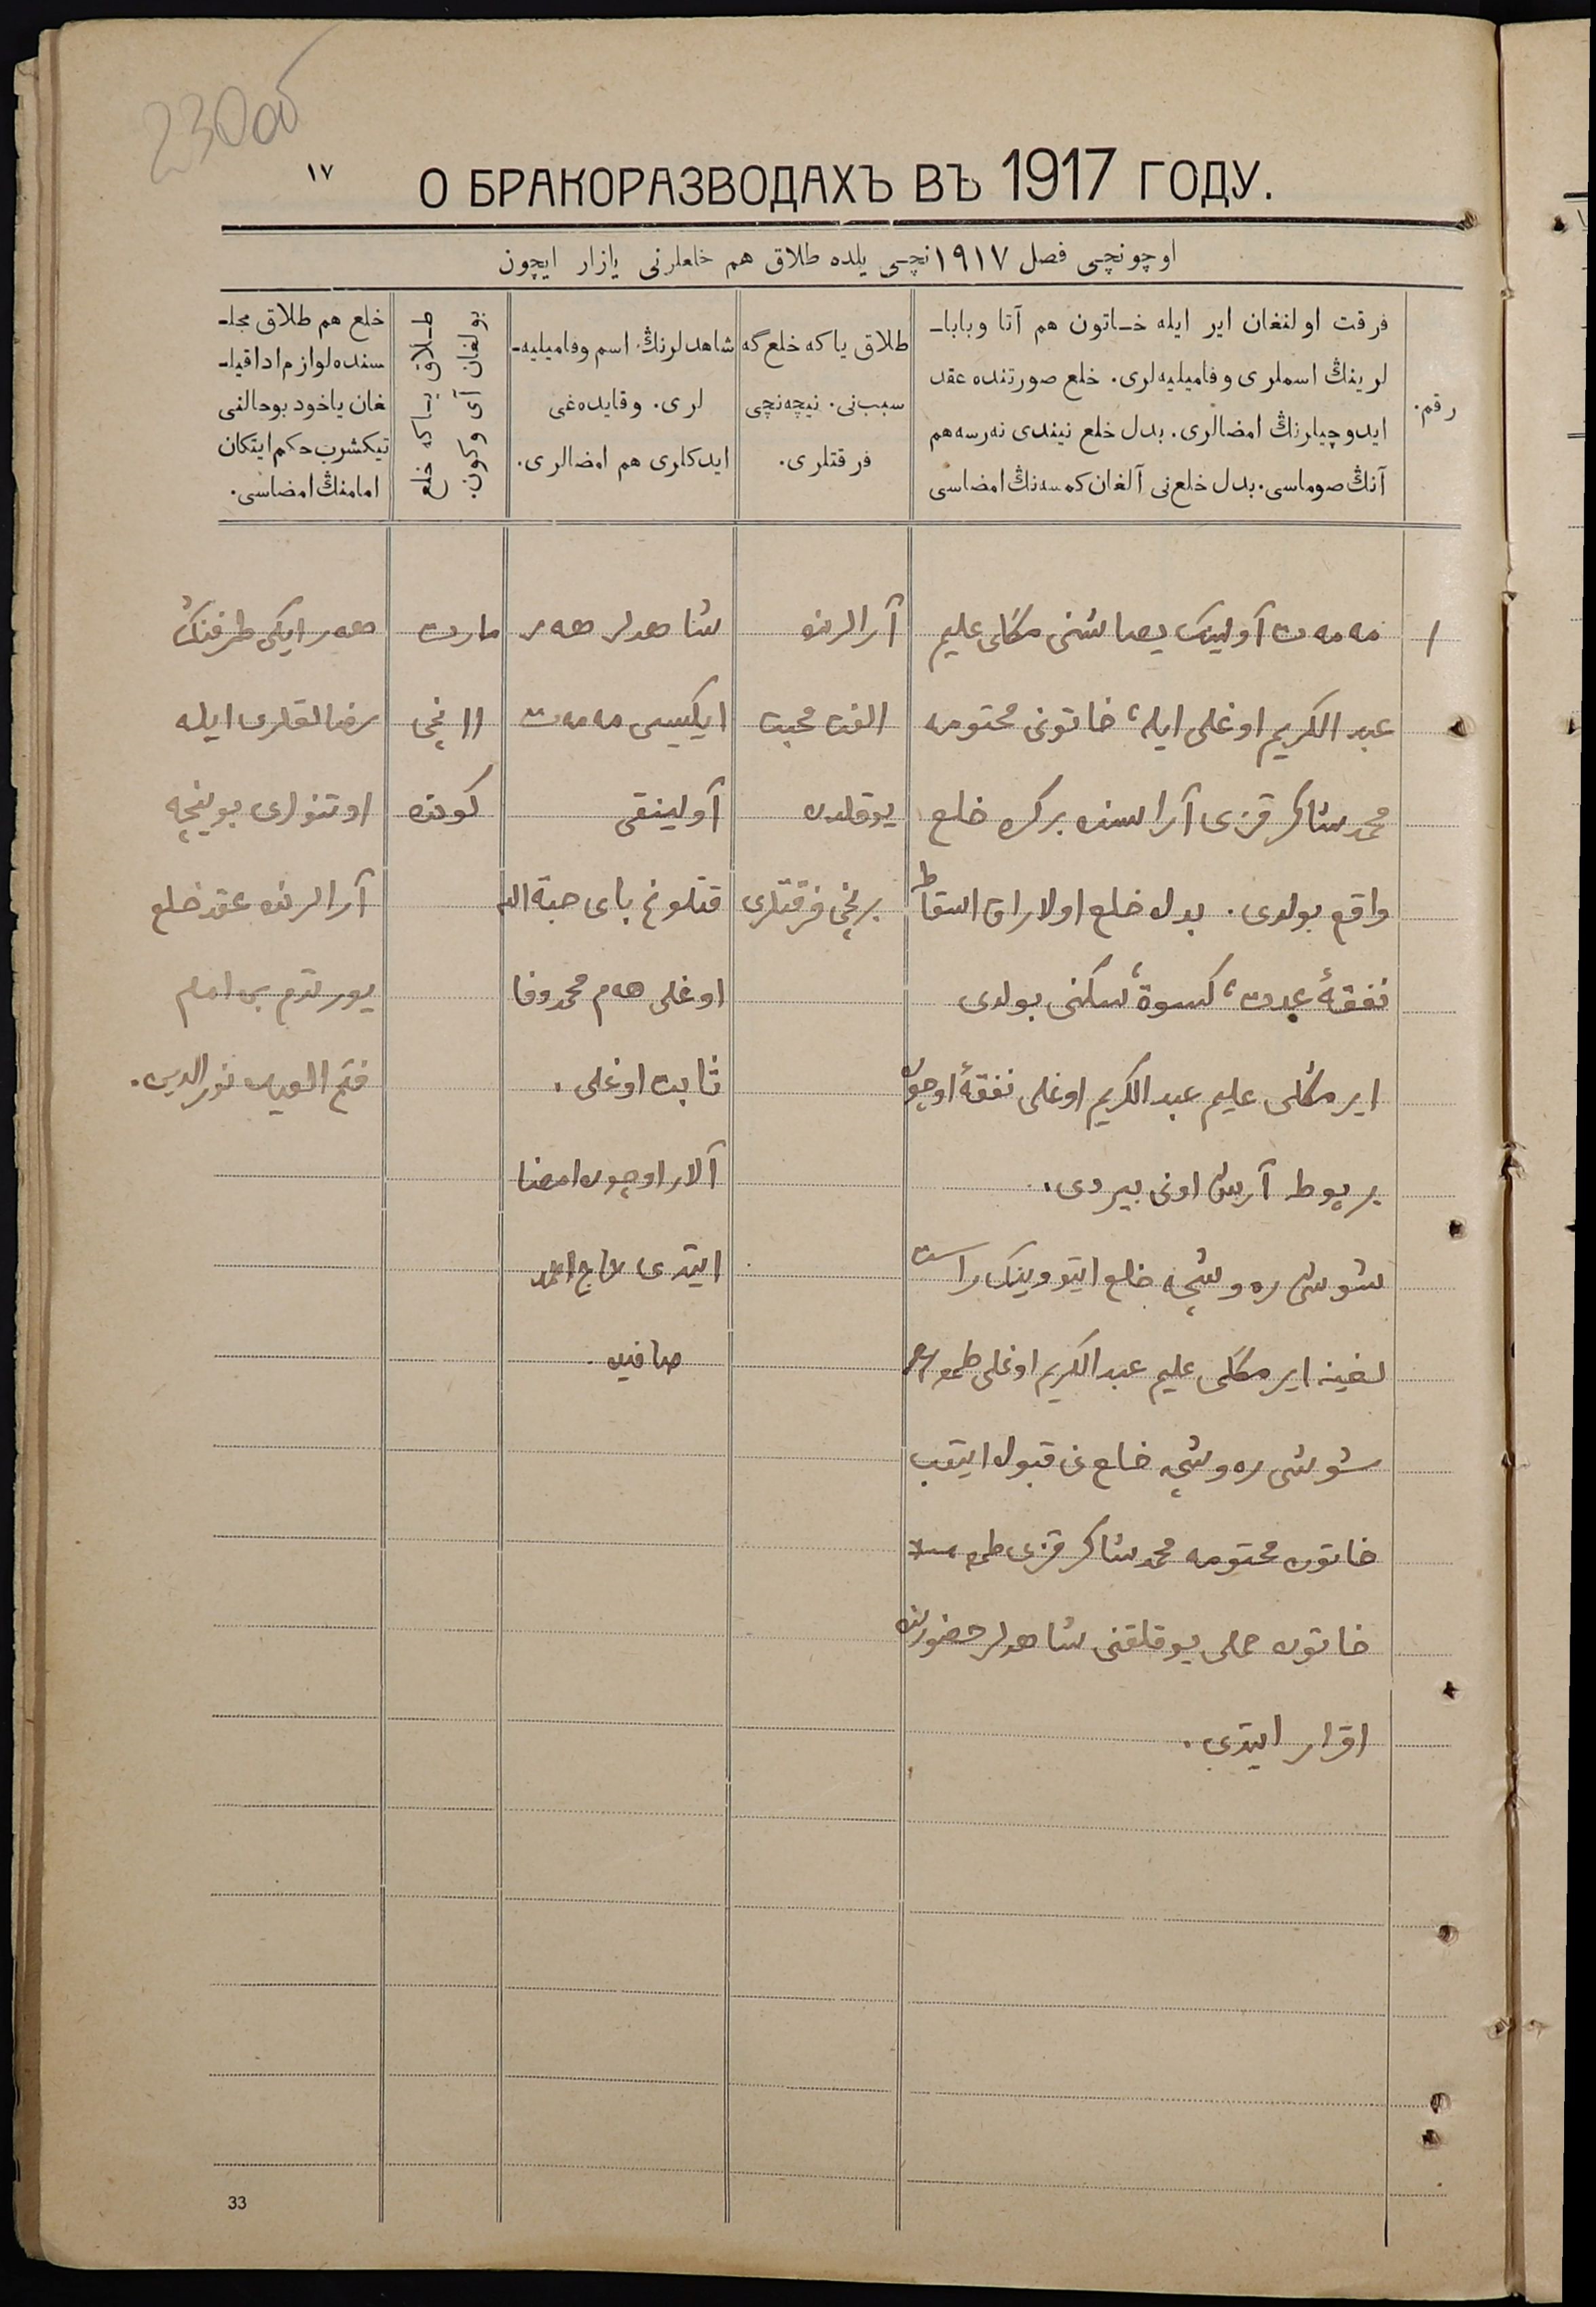 230об
١٧
О БРАКОРАЗВОДАХЪ ВЪ 1917 ГОДУ.
اوچونچی فصل ١٩١٧نچی یلده طلاق هم خلعلرنی یازار ایچون
رقم.
فرقت اولنغان ایر ایله خاتون هم آتا وبابا-
لرینڭ اسملری وفامیلیه‌لری. خلع صورتنده عقد
ایدوچیلرنڭ امضالری. بدل خلع نیندی نه‌رسه هم
آنڭ صوماسی. بدل خلع‌نی آلغان کمسه‌نڭ امضاسی
طلاق یاکه خلع‌گه
سبب‌نی. نیچه‌نچی
فرقتلری.
شاهدلرنڭ اسم وفامیلیه-
لری. وقایده‌غی
ایدکلری هم امضالری.
طلاق یاکه خلع
بولغان آی وکون.
خلع هم طلاق مجلـ
سنده لوازم ادا قیلـ
غان یاخود بوحالنی
تیکشرب حکم ایتکان
امامنڭ امضاسی.
١
مه مه ت آولینک یصاشنی مڭلی علیم
عبد الکریم اوغلی ایله، خاتونی محتومه
محمد شاکر قزی آراسنده برکره خلع
واقع بولدی. بدل خلع اولاراق اسقاط
نفقهٔ عدت، کسوة، سکنی بولدی
ایر مڭلی علیم عبد الکریم اوغلی نفقهٔ اوچون
بر پوط آرش اونی بیردی.
شوشی ره وشچه خلع ایتووینک راست
لغینه ایر مڭلی علیم عبد الکریم اوغلی
شوشی ره وشچه خلع نی قبول ایتب
خاتون محتومه محمد شاکر قزی
خاتون حملی یوقلقنی شاهدلر حضورنده
اقرار ایتدی.
آرالرنده
الفت محبت
یوقلدن
برنچی فرقتلری
شاهدلر هه ر
ایکیسی مه مه ت
آولینقی
قتلوغ بای هبة الله
اوغلی هه م محمد وفا
ثابت اوغلی.
آلار اوچون امضا
ایتدی
مارت
11 نچی
کونده
هه ر ایکی طرفنڭ
رضالقلری ایله
اوتنولری بوینچه
آرالرنده عقد خلع
یورتدم بن امام
نور الدین.
33